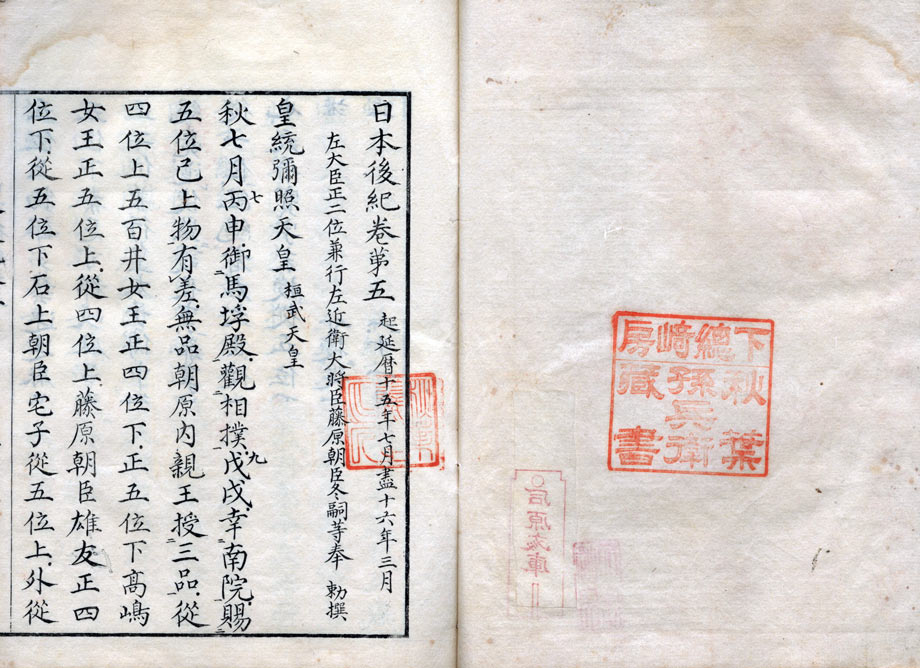 下總崎房
秋葉孫兵衛藏書
日本後紀卷第五 起延曆十五年七月盡十六年三月
左大臣正二位兼行左近衛大將臣藤原朝臣冬嗣等奉 勅撰
皇統彌照天皇 桓武天皇
秋七月丙申七御馬埒殿觀相撲戊戌九幸南院賜
五位已上物有差無品朝原內親王授三品從
四位上五百井女王正四位下正五位下高嶋
女王正五位上從四位上藤原朝臣雄友正四
位下從五位下石上朝臣宅子從五位上外從